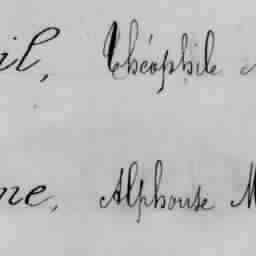 il, Théophile
ne, Alphonse M